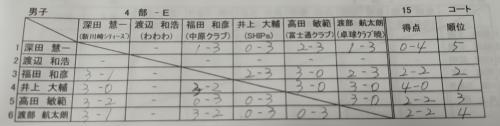 男子 4 部 -E 15 コート
深田 慧一 渡辺 和浩 福田 和彦 井上 大輔 高田 敏範 渡部 航太朗 得点 順位
(新川崎シティーズ) (わわわ) (中原クラブ) (SHIPs) (富士通クラブ) (卓球クラブ暁)
1 深田 慧一 - 1-3 0-3 2-3 1-3 0-4 5
2 渡辺 和浩 - - - - -
3 福田 和彦 3-1 - 2-3 3-0 2-3 2-2 2
4 井上 大輔 3-0 - 3-2 3-0 3-0 4-0 1
5 高田 敏範 3-2 - 0-3 0-3 3-0 2-2 3
6 渡部 航太朗 3-1 - 3-2 0-3 0-3 2-2 4